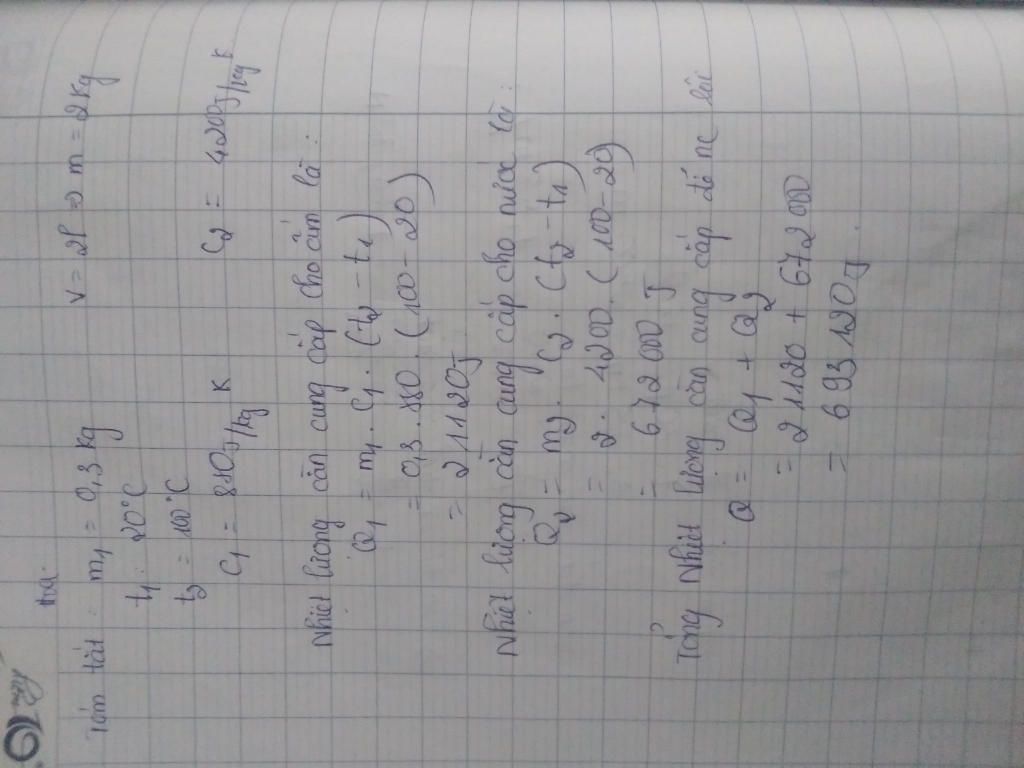 Tóm tắt: m1 = 0,3 kg V = 2l => m = 2kg
t1: 20°C
t2 = 100°C
C1 = 880J/kg K C2 = 4200J/kg K
Nhiệt lượng cần cung cấp cho ấm là:
Q1 = m1. C1. (t2 - t1)
= 0,3. 880. (100 - 20)
= 21120J
Nhiệt lượng cần cung cấp cho nước là:
Q2 = m2. C2. (t2 - t1)
= 2. 4200. (100 - 20)
= 672 000 J
Tổng Nhiệt lượng cần cung cấp để nc sôi
Q = Q1 + Q2
= 21120 + 672 000
= 693 120J.